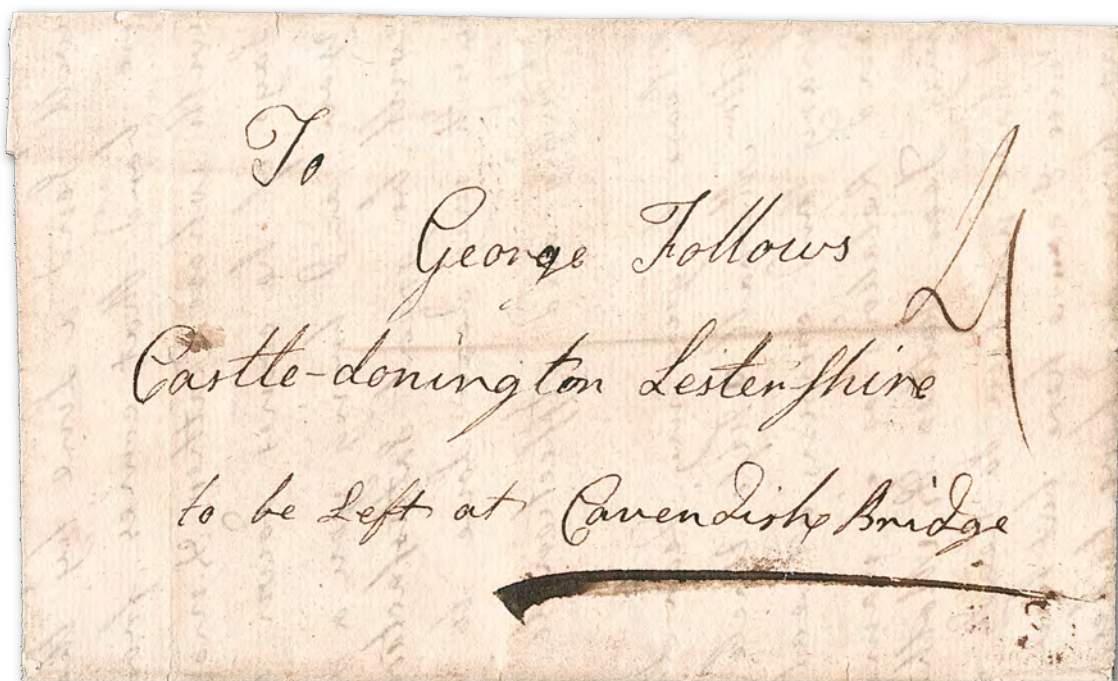 To
George Follows
Castle-donington Lestershire
to be Left at Cavendish Bridge